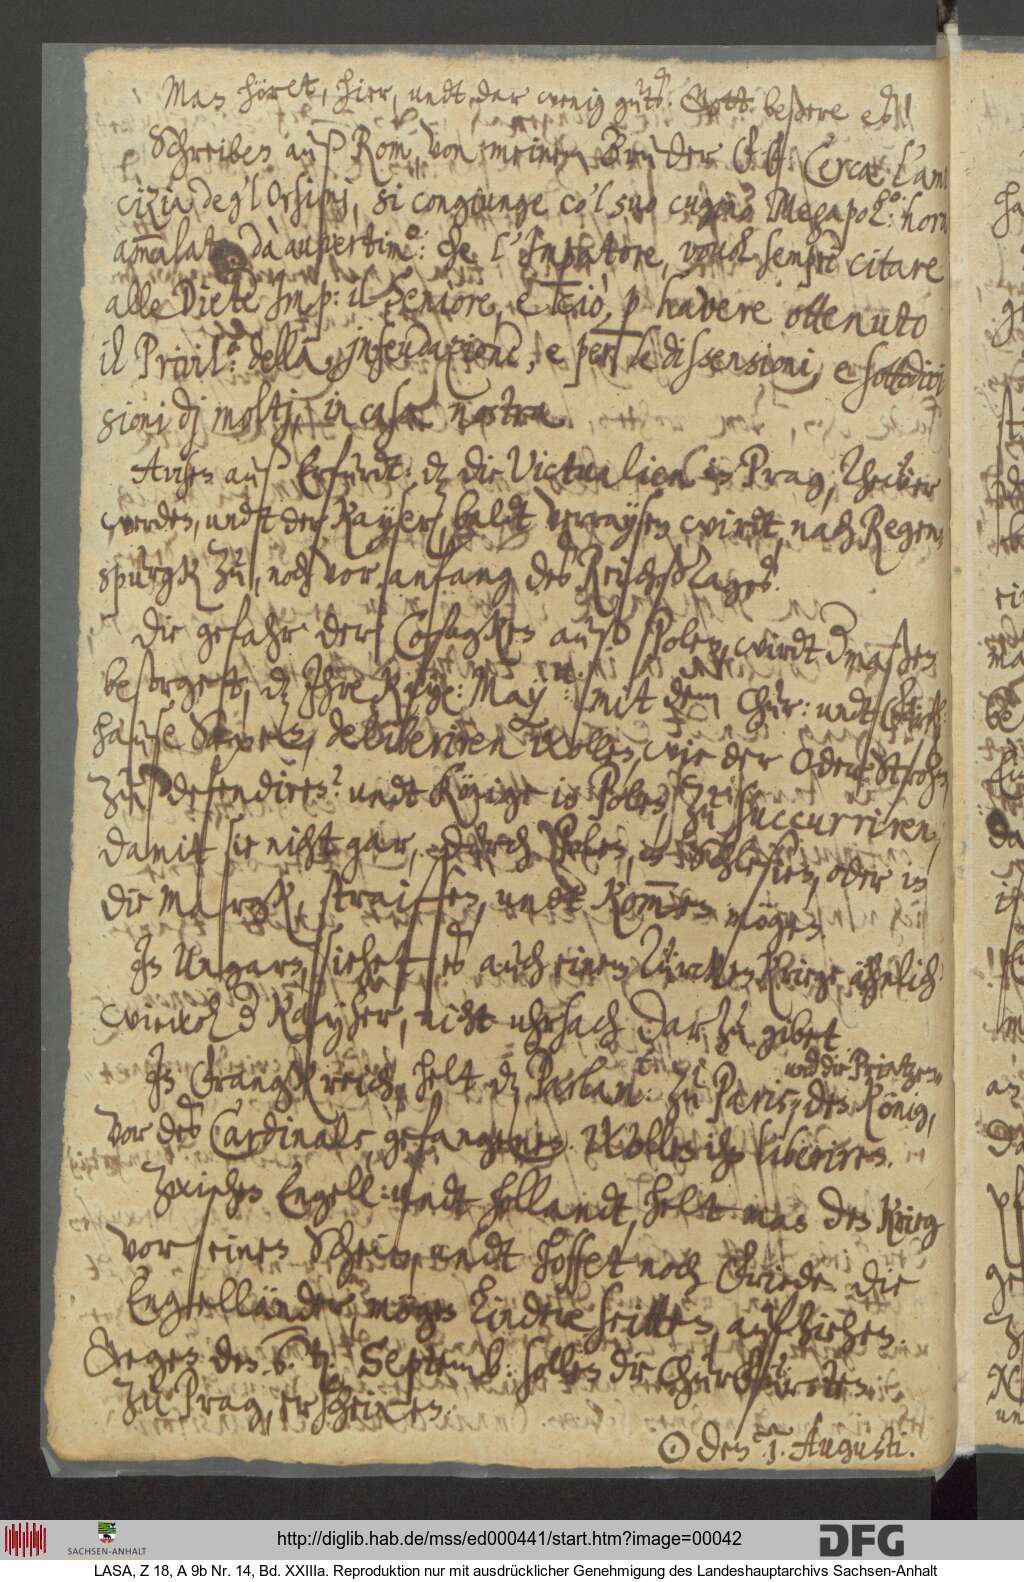 Man höret, hier, undt dar wenig guts. Gott beßere es!
Schreiben auß Rom, von meinem Bruder F F: Cerca l'ami
cizia degl' Orsini, si congiunge co'l suo cugino Megapol:º hora
am̃alato dà aupertimº: che l'Imp̃atore, vouol sempre citare
alle Diete Imp: il Seniore, e ciò, p havere ottenuto
il Privil:º della infeudazione, e per le dissensioni, e sottodivi
sioni dj moltj, in casa nostra.
Avisen auß Erfurdt: dz die Victualien in Prag, Thewer
werden, undt der Kayser, baldt verraysen wirdt, nach Regen-
spurgk zu, noch vor anfang des ReichsTages.
Die gefahr der Cosagken auß Polen, wirdt dermaßen
besorget, dz Ihre Kaye: Mayt: mit dem Chur: undt
hause Saxen, deliberiren wollen, wie der Oder Strohm,
zu defendiren? undt Könige in Polen zu succurriren,
damitt sie nicht gar, durch Polen, in Schlesien, oder in
die Marck, straiffen, undt kom̃en mögen.
In Ungarn, siehet es auch einem Türcken Kriege, ähnlich
wiewol d Kayser, nicht uhrsach darzu gibet.
In Franckreich, helt dz Parlamt: zu Paris, den König, undt die Printzen
vor des Cardinals, gefangenen. Wollen ihn liberiren.
Zwischen Engell: undt Hollandt, helt man den Krieg
vor einen Schein, undt hoffet noch Friede. Die
Engelländer, mögen lindere seitten, aufziehen.
Gegen den 6. ten Septemb: sollen die Churfürsten
zu Prag, erscheinen.
☉ den 1. Augusti.
http://diglib.hab.de/mss/ed000441/start.htm?image=00042
SACHSEN-ANHALT
DFG
LASA, Z 18, A 9b Nr. 14, Bd. XXIIIa. Reproduktion nur mit ausdrücklicher Genehmigung des Landeshauptarchivs Sachsen-Anhalt